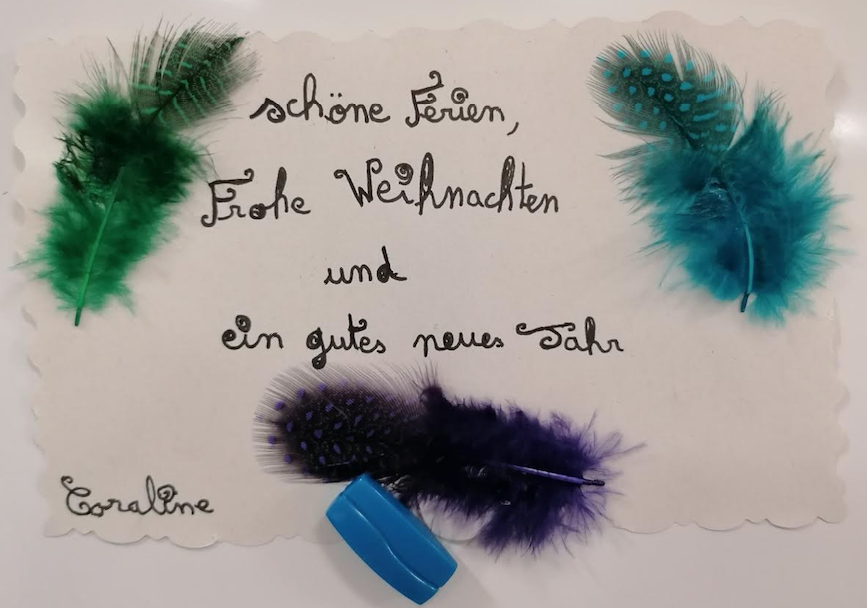 schöne Ferien,
Frohe Weihnachten
und
ein gutes neues Jahr
Coraline